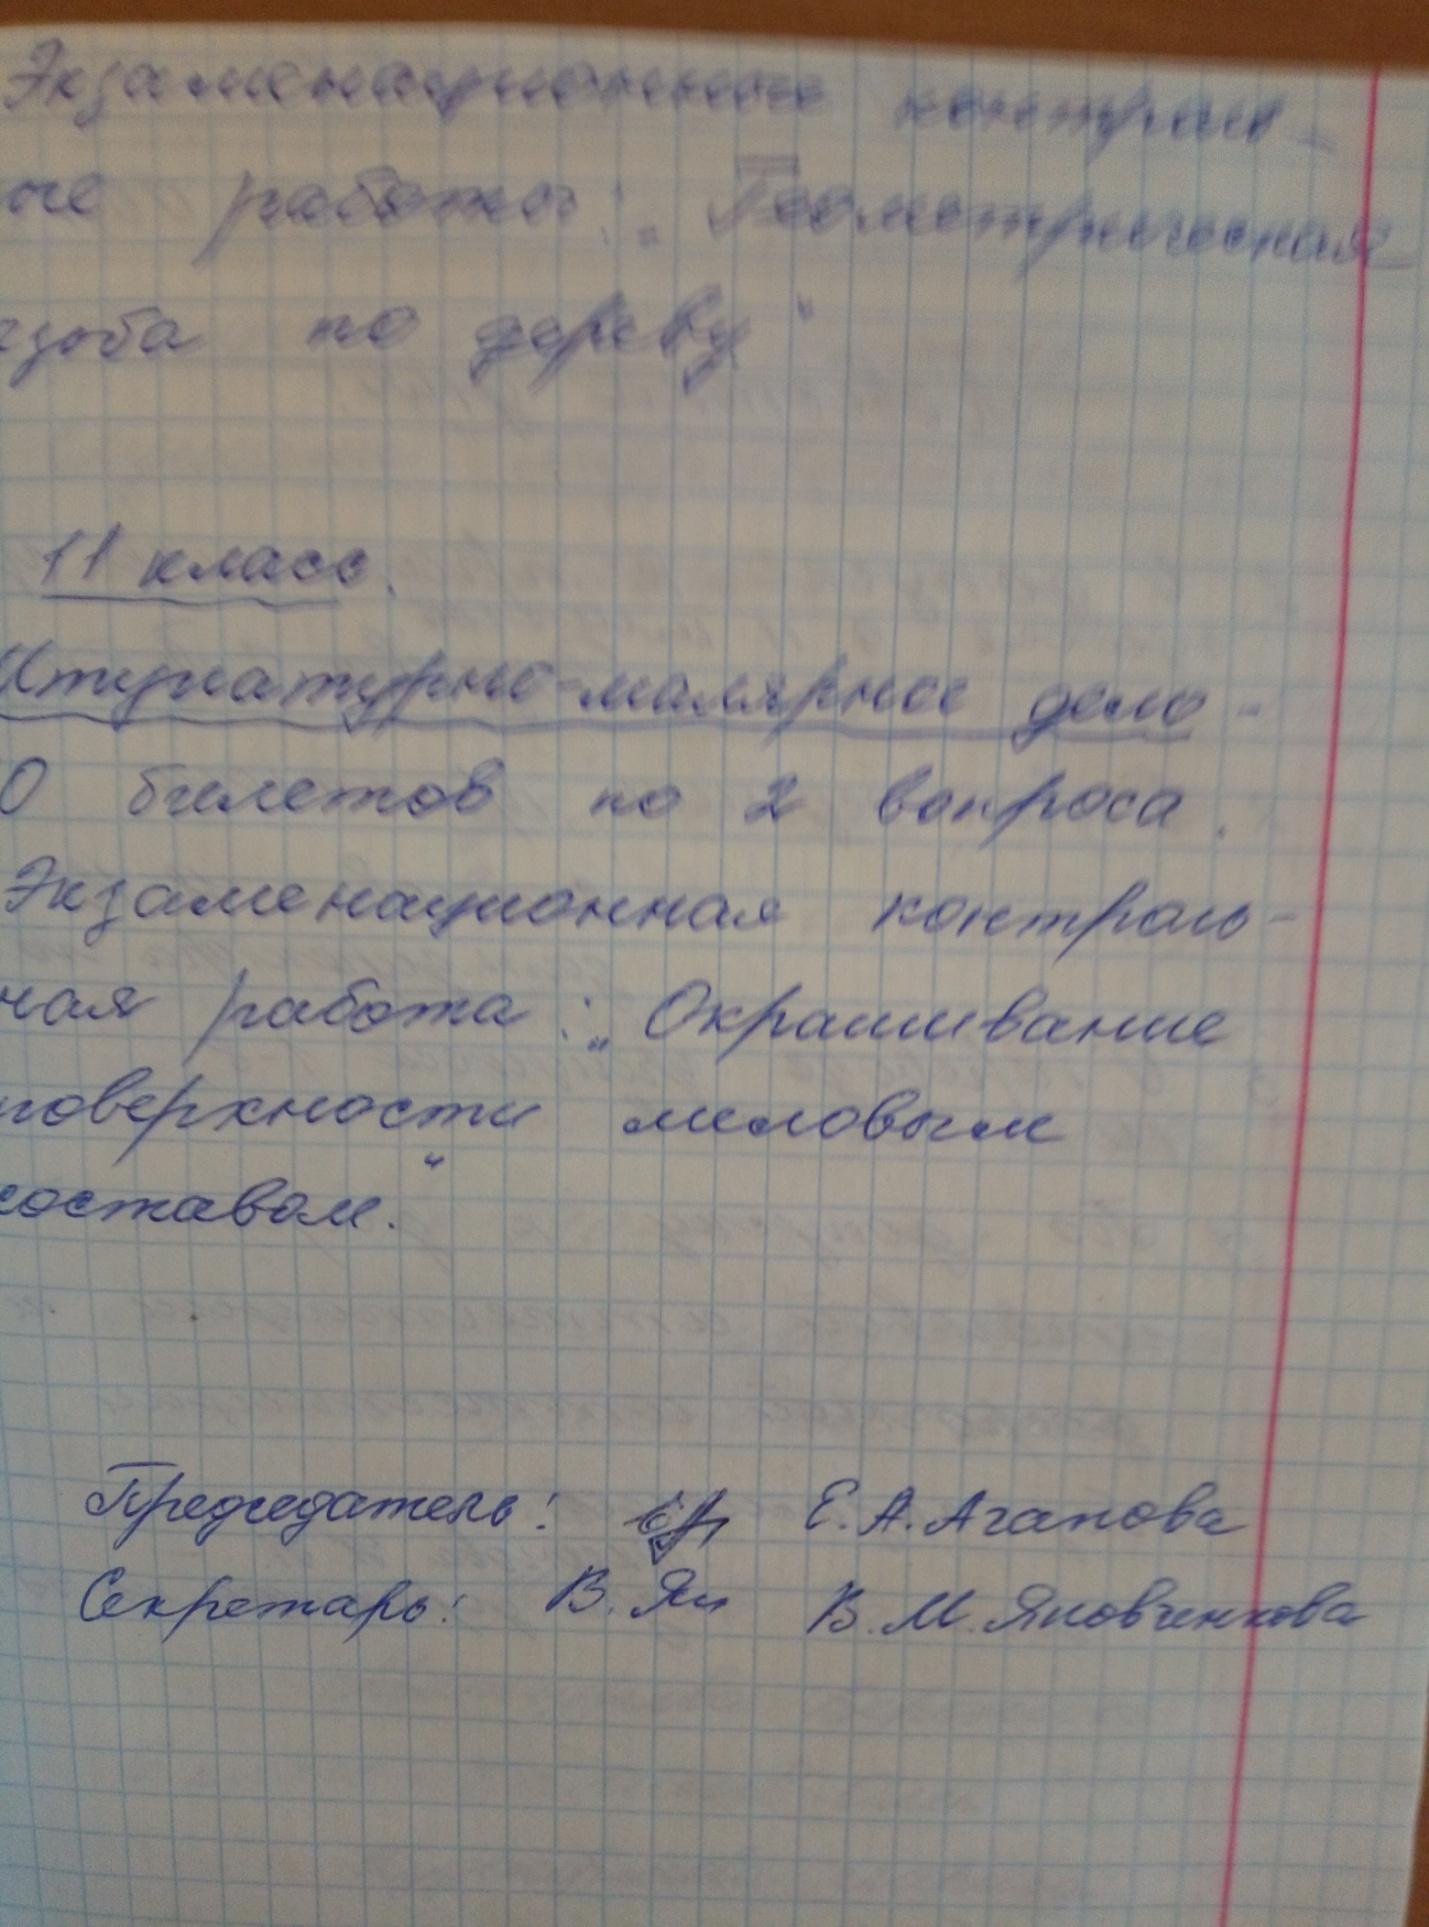 Экзаменационные контроль-
ые работы: „Геометрическая
езьба по дереву"
11 класс.
Штукатурно-малярное дело -
0 билетов по 2 вопроса.
Экзаменационная контроль-
ная работа: „Окрашивание
поверхности меловым
составом."
Председатель: Е.А. Агапова
Секретарь: В. Як В.М. Яковченкова